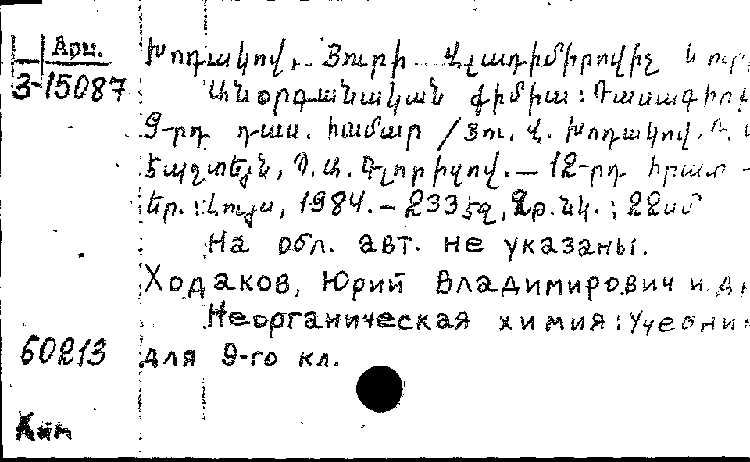 Арм.
З-15087
Խոդակով, Յուրի Վլադիմիրովիչ և ուր
Անօրգանական քիմիա: Դասագիրք
9-րդ դաս. համար /Յու. Վ. Խոդակով,
Էպշտեյն, Պ. Ա. Գլորիոզով. — 12-րդ հրատ —
Եր.: Լույս, 1984. — 233 էջ, նկ.; 22սմ
На обл. авт. не указаны.
Ходаков, Юрий Владимирович и др
Неорганическая химия: Учебник
60213 для 9-го кл.
Хим